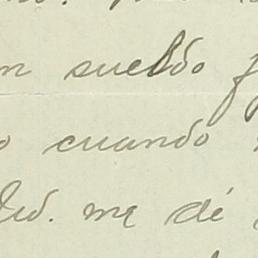 sueldo
cuando
Ud. me dé